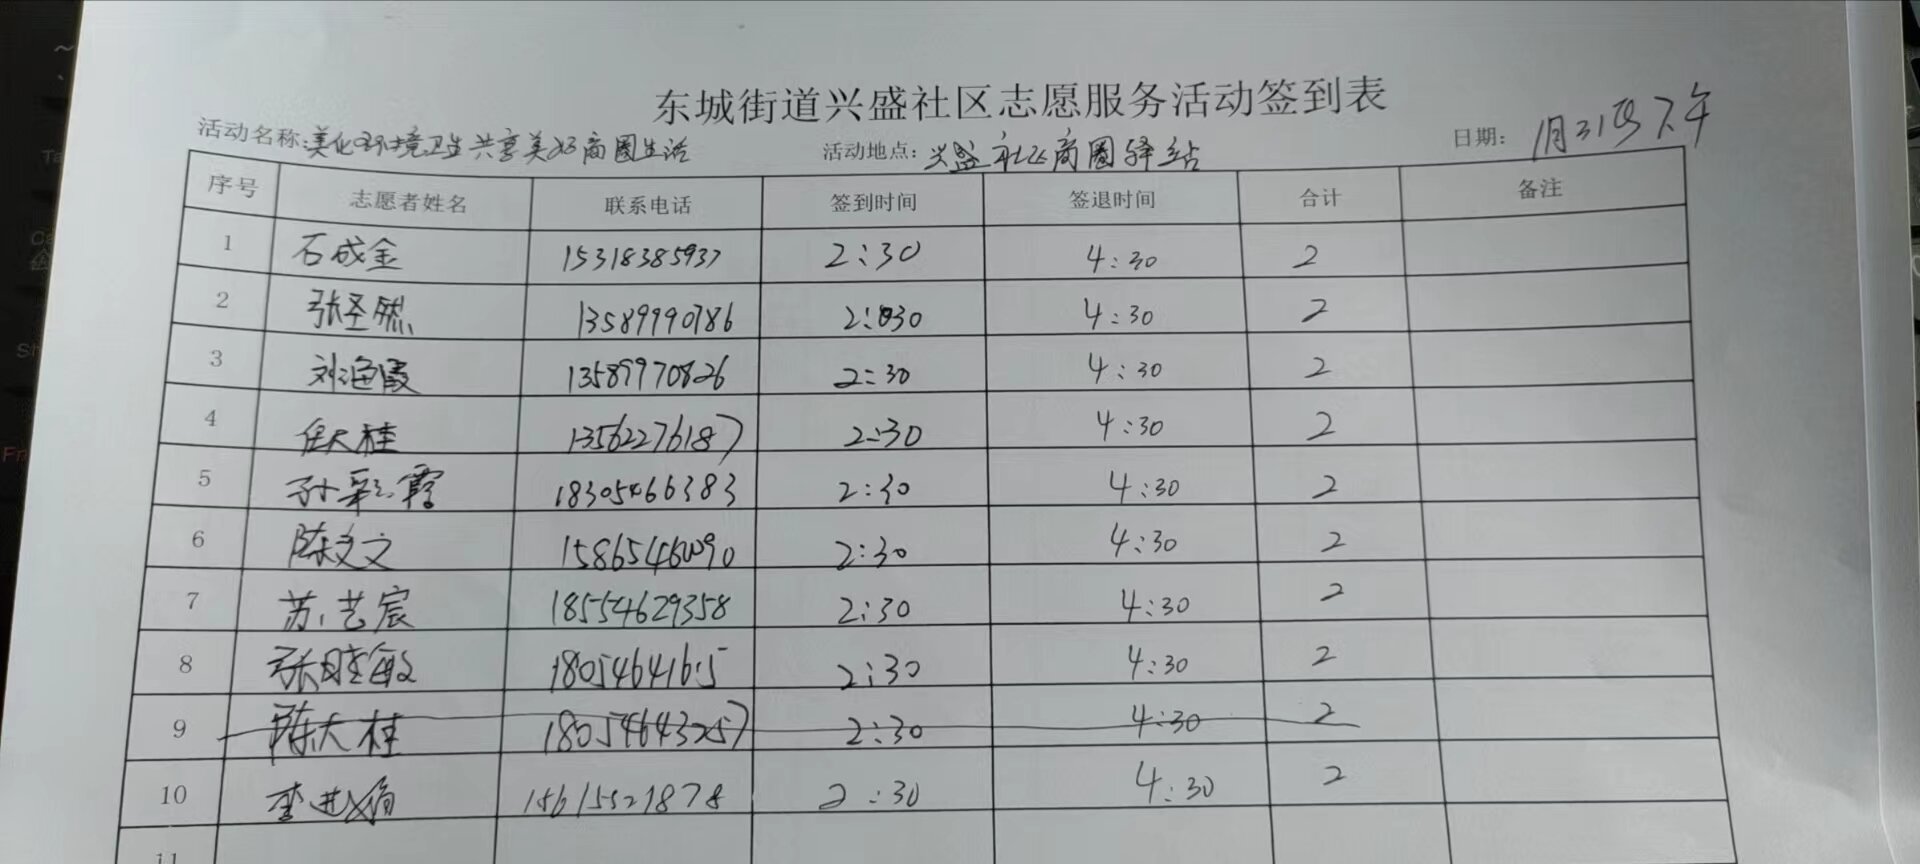 东城街道兴盛社区志愿服务活动签到表
活动名称:美化环境卫生共享美好商圈生活 活动地点: 兴盛社区商圈驿站 日期: 1月31号下午
序号 志愿者姓名 联系电话 签到时间 签退时间 合计 备注
1 石成金 15318385937 2:30 4:30 2
2 张圣燃 13589990786 2:30 4:30 2
3 刘渔霞 13589970826 2:30 4:30 2
4 任大桂 13562276187 2:30 4:30 2
5 孙彩霞 18305466383 2:30 4:30 2
6 陈文文 2:30 4:30 2
7 苏艺宸 18554629358 2:30 4:30 2
8 张 敏 2:30 4:30 2
9 陈大桂 18054643257 2:30 4:30 2
10 李进 2:30 4:30 2
11